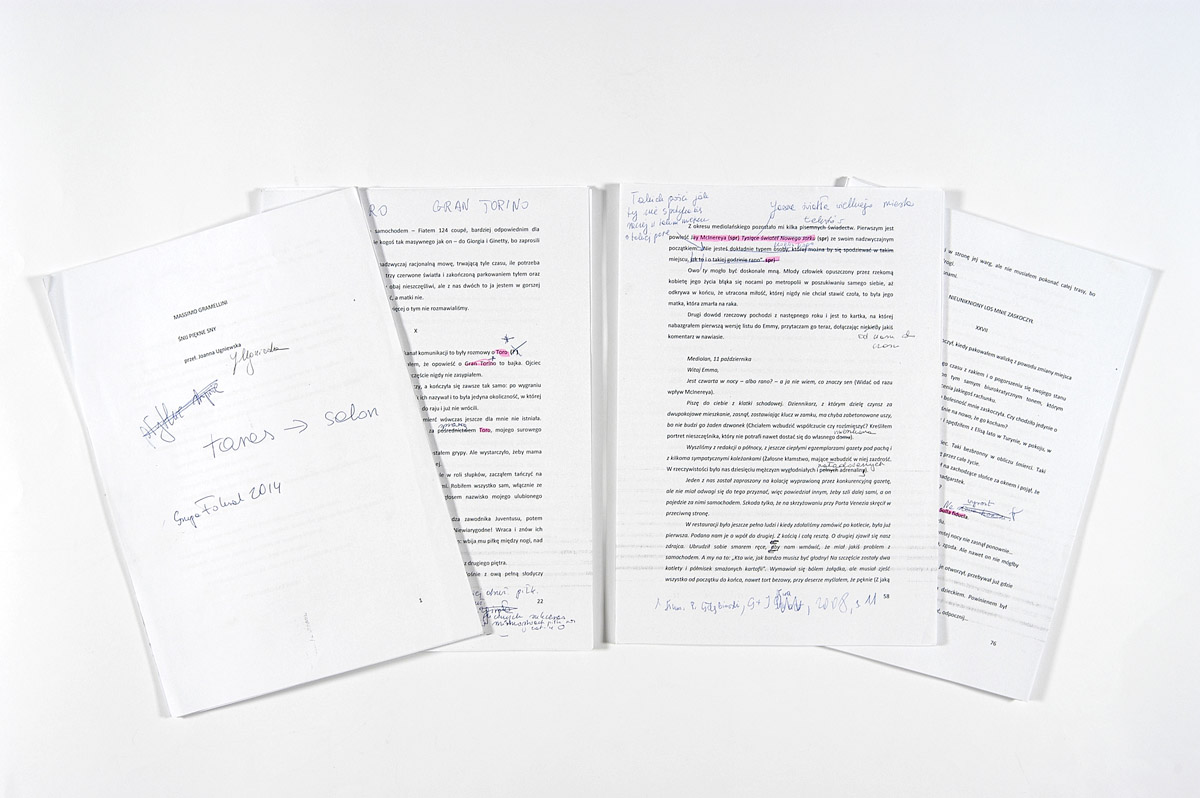 MASSIMO GRAMELLINI
ŚNIJ PIĘKNE SNY
przeł. Joanna Ugniewska
JUgniewska
taras → salon
2014
5
RO GRAN TORINO
samochodem – Fiatem 124 coupé, bardziej odpowiednim dla
kogoś tak masywnego jak on – do Giorgia i Ginetty, bo zaprosili
nadzwyczaj racjonalną mowę, trwającą tyle czasu, ile potrzeba
trzy czerwone światła i zakończoną parkowaniem tyłem oraz
obaj nieszczęśliwi, ale z nas dwóch to ja jestem w gorszej
, a matki nie.
ięcej o tym nie rozmawialiśmy.
X
kanał komunikacji to były rozmowy o Toro
że opowieść o Gran Torino to bajka. Ojciec
szczęście nigdy nie zasypiałem.
a kończyła się zawsze tak samo: po wygraniu
ich nazywał i to była jedyna okoliczność, w której
do raju i już nie wrócili.
mierć wówczas jeszcze dla mnie nie istniała.
za pośrednictwem Toro, mojego surowego
stałem grypy. Ale wystarczyło, żeby mama
ej.
w roli słupków, zacząłem tańczyć na
i. Robiłem wszystko sam, włącznie ze
głosem nazwisko mojego ulubionego
dza zawodnika Juventusu, potem
Niewiarygodne! Wraca i znów ich
wbija mu piłkę między nogi, nad
drugiego piętra.
śnie z ową pełną słodyczy
22
Takich gości jak
ty nie spotyka
Jasne światła wielkiego miasta
Z okresu mediolańskiego pozostało mi kilka pisemnych świadectw. Pierwszym jest
powieść Jay McInereya (spr) Tysiące świateł Nowego Jorku (spr) ze swoim nadzwyczajnym
początkiem: „Nie jesteś dokładnie typem osoby, której można by się spodziewać w takim
miejscu, jak to i o takiej godzinie rano” spr)
Owo ty mogło być doskonale mną. Młody człowiek opuszczony przez rzekomą
kobietę jego życia błąka się nocami po metropolii w poszukiwaniu samego siebie, aż
odkrywa w końcu, że utracona miłość, której nigdy nie chciał stawić czoła, to była jego
matka, która zmarła na raka.
Drugi dowód rzeczowy pochodzi z następnego roku i jest to kartka, na której
nabazgrałem pierwszą wersję listu do Emmy, przytaczam go teraz, dołączając niekiedy jakiś
komentarz w nawiasie.
od czasu do
czasu
Mediolan, 11 października
Witaj Emmo,
Jest czwarta w nocy – albo rano? – a ja nie wiem, co znaczy sen (Widać od razu
wpływ McInereya).
Piszę do siebie z klatki schodowej. Dziennikarz, z którym dzielę czynsz za
dwupokojowe mieszkanie, zasnął, zostawiając klucz w zamku, ma chyba zabetonowane uszy,
bo nie budzi go żaden dzwonek (Chciałem wzbudzić współczucie czy rozśmieszyć? Kreśliłem
portret nieszczęśnika, który nie potrafi nawet dostać się do własnego domu).
mieszkania
Wyszliśmy z redakcji o północy, z jeszcze ciepłymi egzemplarzami gazety pod pachą i
z kilkoma sympatycznymi koleżankami (Żałosne kłamstwo, mające wzbudzić w niej zazdrość.
W rzeczywistości było nas dziesięciu mężczyzn wygłodniałych i pełnych adrenaliny).
Jeden z nas został zaproszony na kolację wyprawioną przez konkurencyjną gazetę,
ale nie miał odwagi się do tego przyznać, więc powiedział innym, żeby szli dalej sami, a on
pojedzie za nimi samochodem. Szkoda tylko, że na skrzyżowaniu przy Porta Venezia skręcił w
przeciwną stronę.
W restauracji było jeszcze pełno ludzi i kiedy zdołaliśmy zamówić po kotlecie, była już
pierwsza. Podano nam je o wpół do drugiej. Z kością i całą resztą. O drugiej zjawił się nasz
zdrajca. Ubrudził sobie smarem ręce, aby nam wmówić, że miał jakiś problem z
samochodem. A my na to: „Kto wie, jak bardzo musisz być głodny! Na szczęście zostały dwa
kotlety i półmisek smażonych kartofli”. Wymawiał się bólem żołądka, ale musiał zjeść
wszystko od początku do końca, nawet tort bezowy, przy deserze myślałem, że pęknie (Z jaką
2008, s 11
58
w stronę jej warg, ale nie musiałem pokonać całej trasy, bo
NIEUNIKNIONY LOS MNIE ZASKOCZYŁ
XXVII
kiedy pakowałem walizkę z powodu zmiany miejsca
czasu z rakiem i o pogorszeniu się swojego stanu
tym samym biurokratycznym tonem, którym
jakiegoś rachunku.
boleśnie mnie zaskoczyła. Czy chodziło jedynie o
na nowo, że go kocham?
i spędziłem z Elisą lato w Turynie, w pokoju, w
Taki bezbronny w obliczu śmierci. Taki
przez całe życie.
na zachodzące słońce za oknem i pojął, że
nadgarstek.
wprost
nocy nie zasnął ponownie...
zgoda. Ale nawet on nie mógłby
otworzył, przebywał już gdzie
dzieckiem. Powinienem był
odpocznij...
76